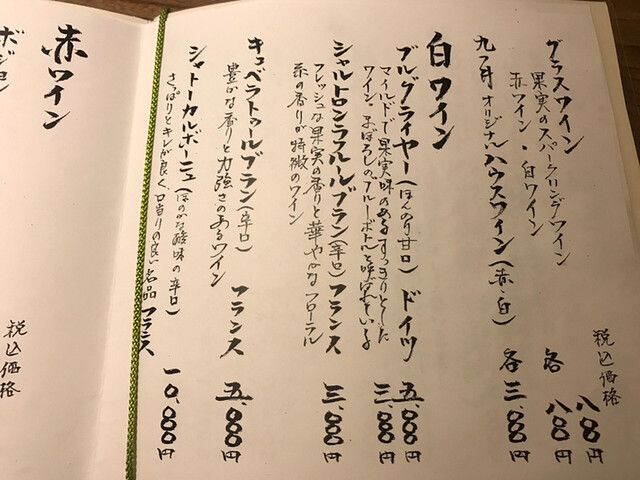 グラスワイン
税込価格
果実のスパークリングワイン 八〇〇円
赤ワイン・白ワイン 各 八〇〇円
九つ井オリジナルハウスワイン(赤・白) 各 三、〇〇〇円
白ワイン
ブルグライヤー(ほんのり甘口) ドイツ 五、〇〇〇円
マイルドで果実味のあるすっきりとした 三、〇〇〇円
ワイン、まぼろしのブルーボトルと呼ばれている
シャルトロンラスールブラン(辛口) フランス 三、〇〇〇円
フレッシュな果実の香りと華やかなフローラル
系の香りが特徴のワイン
キュベラトゥールブラン(辛口) フランス 五、〇〇〇円
豊かな香りと力強さのあるワイン
シャトーカルボーニュ(ほのかな酸味の辛口) 一〇、〇〇〇円
さっぱりとキレが良く、口当りの良い名品 フランス
赤ワイン
税込価格
ボジョ